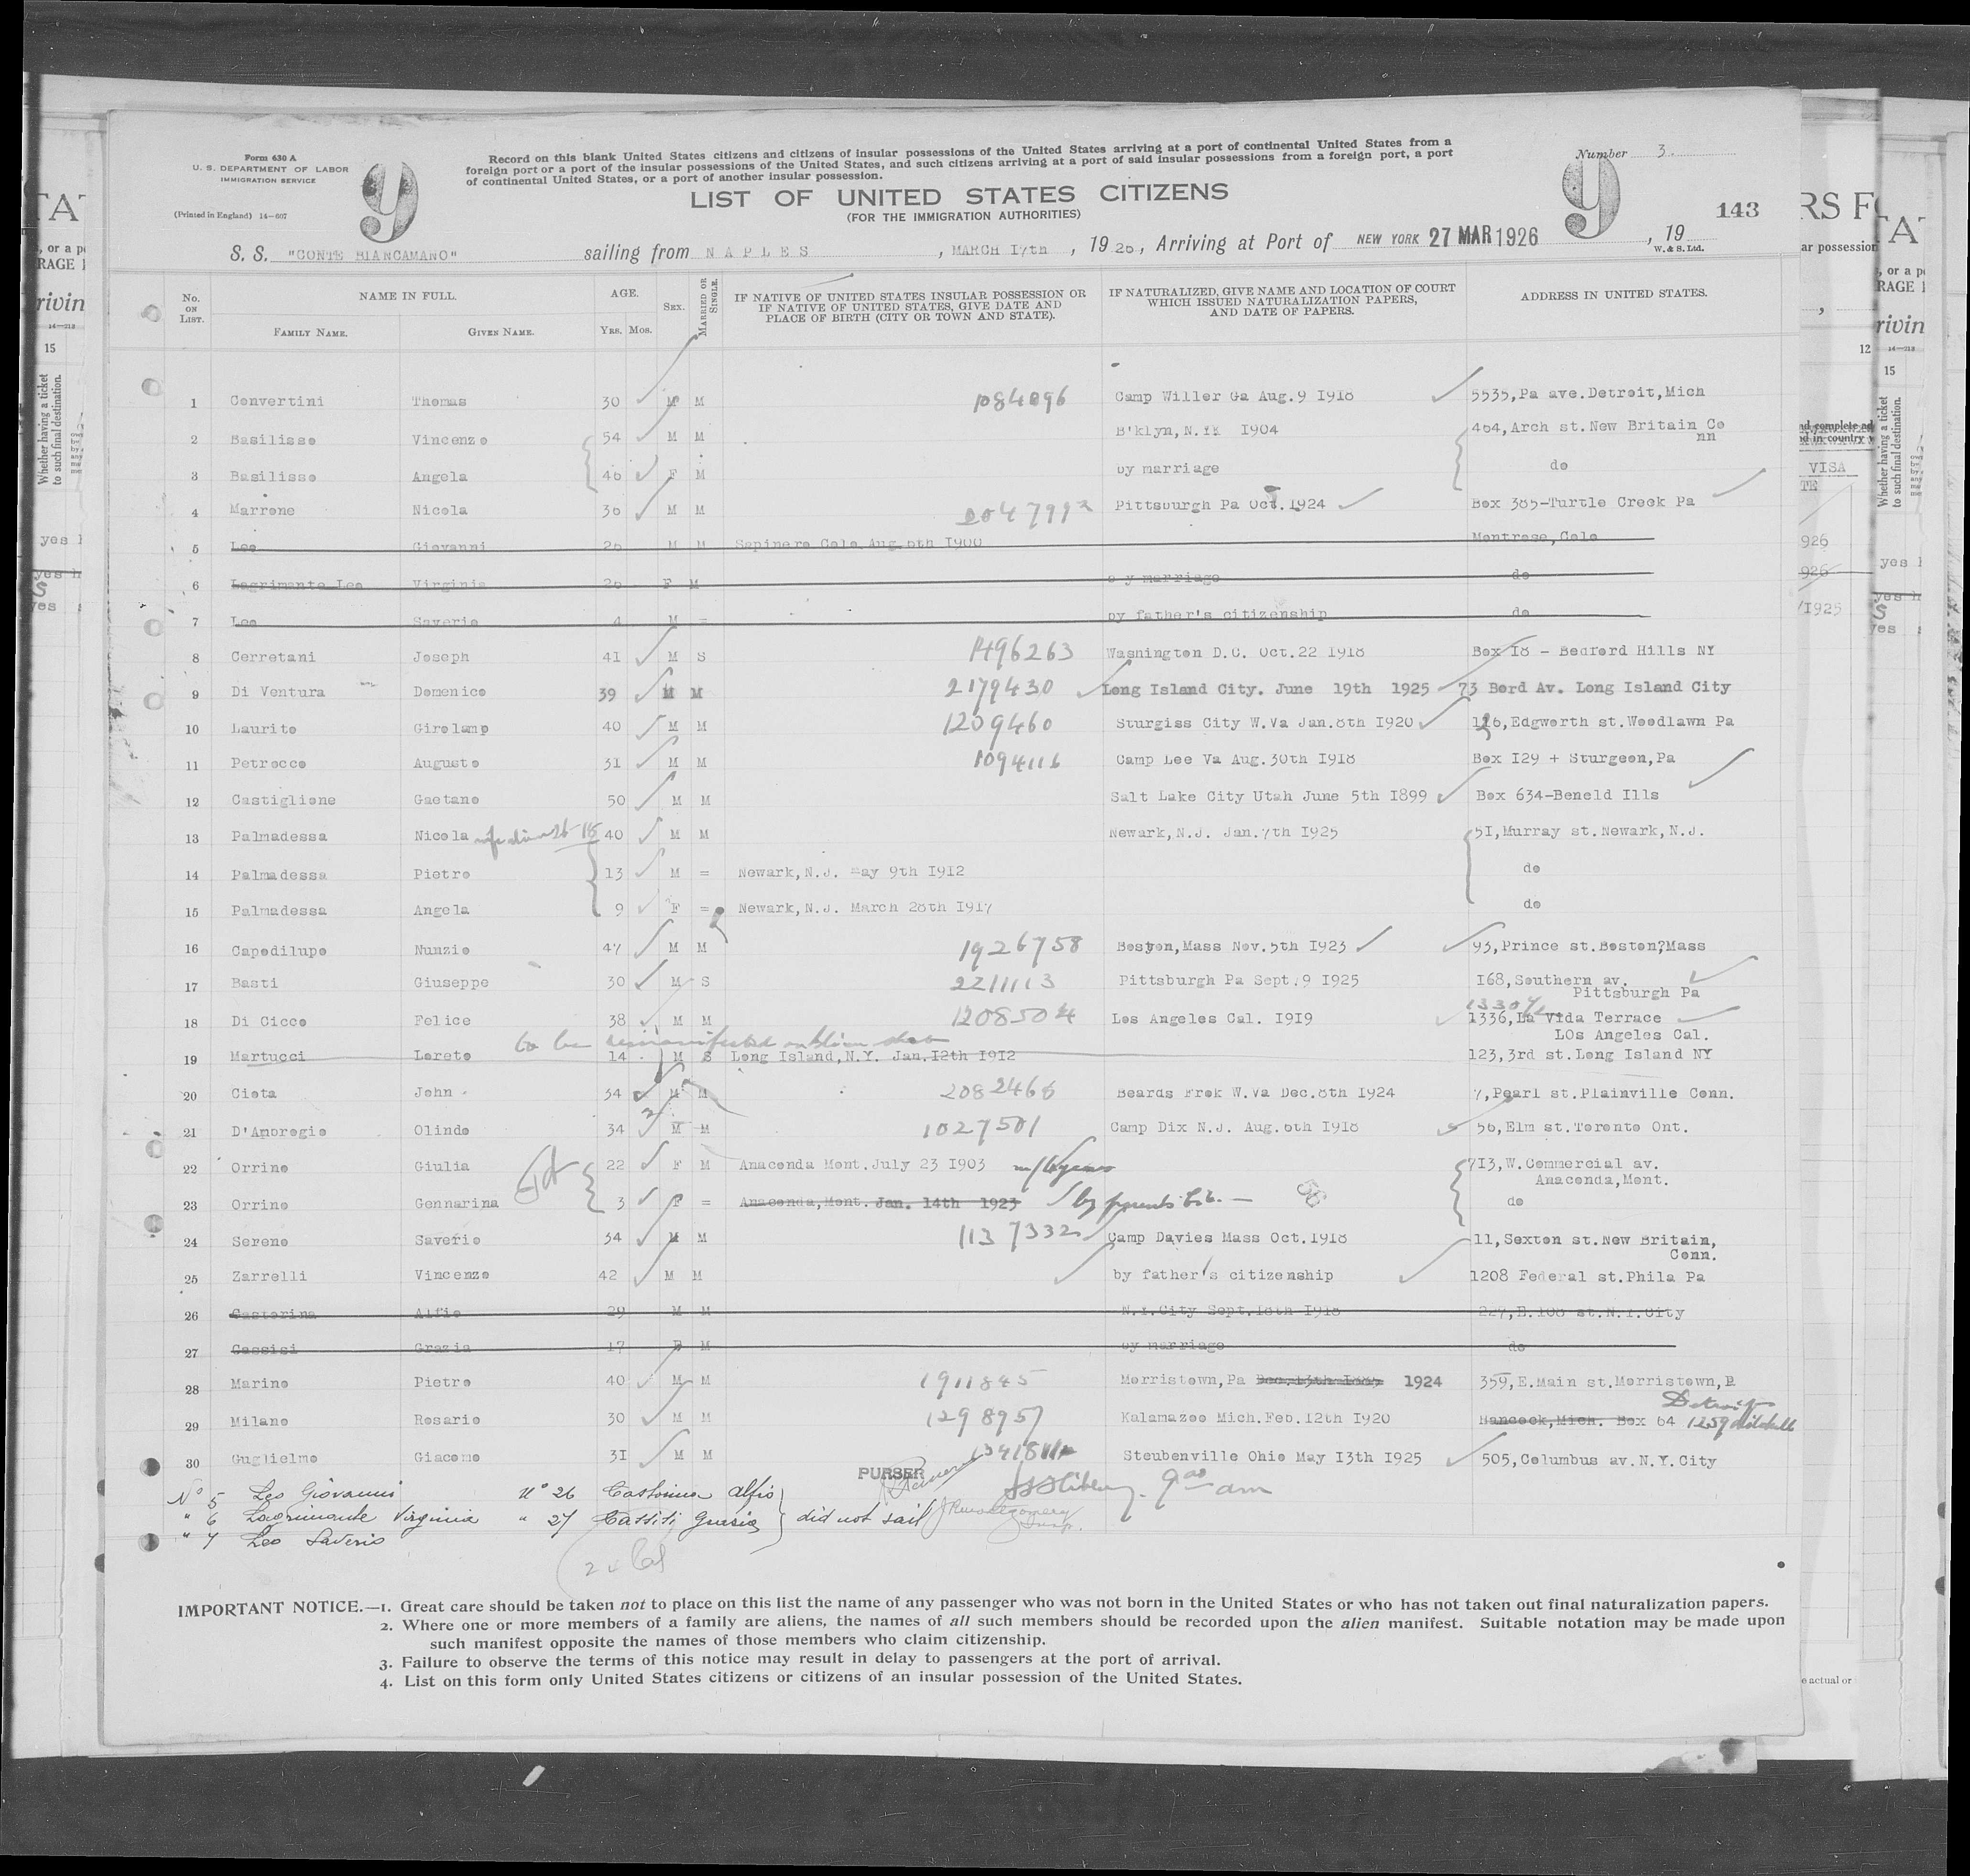 Form 630 A
U. S. DEPARTMENT OF LABOR
IMMIGRATION SERVICE
(Printed in England) 14-607
9
Record on this blank United States citizens and citizens of insular possessions of the United States arriving at a port of continental United States from a
foreign port or a port of the insular possessions of the United States, and such citizens arriving at a port of said insular possessions from a foreign port, a port
of continental United States, or a port of another insular possession.
LIST OF UNITED STATES CITIZENS
(FOR THE IMMIGRATION AUTHORITIES)
9
Number 3.
143
S. S. "CONTE BIANCAMANO" sailing from NAPLES, MARCH I7th, 1926, Arriving at Port of NEW YORK 27 MAR 1926, 19
W. & S. Ltd.
No. ON LIST.
NAME IN FULL.
FAMILY NAME. GIVEN NAME.
AGE.
YRS. MOS.
SEX.
MARRIED OR SINGLE.
IF NATIVE OF UNITED STATES INSULAR POSSESSION OR
IF NATIVE OF UNITED STATES, GIVE DATE AND
PLACE OF BIRTH (CITY OR TOWN AND STATE).
IF NATURALIZED, GIVE NAME AND LOCATION OF COURT
WHICH ISSUED NATURALIZATION PAPERS,
AND DATE OF PAPERS.
ADDRESS IN UNITED STATES.
1 Convertini Thomas 30 M M 1084096 Camp Willer Ga Aug.9 I918 5535,Pa ave.Detroit,Mich
2 Basilisso Vincenzo 54 M M B'klyn,N.YY I904 464,Arch st.New Britain Co
nn
3 Basilisso Angela 46 F M by marriage do
4 Marrone Nicola 36 M M Pittsburgh Pa Oct.1924 Box 385-Turtle Creek Pa
5 Leo Giovanni 26 M M Sapinero Colo Aug.6th I900 Montrose,Colo
6 Lagrimante Leo Virginia 26 F M by marriage do
7 Leo Saverio 4 M = by father's citizenship do
8 Cerretani Joseph 41 M S 1496263 Washington D.C. Oct.22 I918 Box I8 - Bedford Hills NY
9 Di Ventura Domenico 39 M M 2179430 Long Island City. June 19th 1925 73 Bord Av. Long Island City
10 Laurito Girolamo 40 M M 1209460 Sturgiss City W.Va Jan.8th I920 116,Edgworth st.Woodlawn Pa
11 Petrocco Augusto 31 M M 1094116 Camp Lee Va Aug.30th I918 Box I29 + Sturgeon,Pa
12 Castiglione Gaetano 50 M M Salt Lake City Utah June 5th I899 Box 634-Beneld Ills
13 Palmadessa Nicola 40 M M Newark,N.J. Jan.7th I925 5I,Murray st.Newark,N.J.
14 Palmadessa Pietro 13 M = Newark,N.J. May 9th I9I2 do
15 Palmadessa Angela 9 F = Newark,N.J. March 28th I9I7 do
16 Capodilupo Nunzio 47 M M 1926758 Boston,Mass Nov.5th I923 93,Prince st.Boston?Mass
17 Basti Giuseppe 30 M S 2211113 Pittsburgh Pa Sept.9 I925 I68,Southern av.
Pittsburgh Pa
18 Di Cicco Felice 38 M M 1208504 Los Angeles Cal. I9I9 1336,La Vida Terrace
LOs Angeles Cal.
to be
19 Martucci Loreto 14 M S Long Island,N.Y. Jan.I2th I9I2 123,3rd st.Long Island NY
20 Ciota John 34 M M 2082466 Beards Frok W.Va Dec.8th I924 7,Pearl st.Plainville Conn.
21 D'Ambrogio Olindo 34 M M 1027501 Camp Dix N.J. Aug.6th I918 56,Elm st.Toronto Ont.
22 Orrino Giulia 22 F M Anaconda Mont.July 23 I903 7I3,W.Commercial av.
Anaconda,Mont.
23 Orrino Gennarina 3 F = Anaconda,Mont. Jan. 14th 1923 by parents do
24 Sereno Saverio 34 M M 1137332 Camp Davies Mass Oct.I918 11,Sexton st.New Britain,
Conn.
25 Zarrelli Vincenzo 42 M M by father's citizenship 1208 Federal st.Phila Pa
26 Castorina Alfio 29 M M N.Y.City Sept.18th I918 227,E.108 st.N.Y.City
27 Cassisi Grazia 17 F M by marriage do
28 Marino Pietro 40 M M 1911845 Morristown,Pa 1924 359,E.Main st.Morristown,P
Detroit
29 Milano Rosario 30 M M 1298957 Kalamazoo Mich.Feb.12th I920 Hancock,Mich. Box 64 1259
30 Guglielmo Giacomo 3I M M Steubenville Ohio May I3th I925 505,Columbus av.N.Y.City
PURSER
No 5 Leo Giovanni No 26 Castorina Alfio
" 6 Lagrimante Virginia " 27 Cassisi Grazia } did not sail
" 7 Leo Saverio
IMPORTANT NOTICE.—1. Great care should be taken not to place on this list the name of any passenger who was not born in the United States or who has not taken out final naturalization papers.
2. Where one or more members of a family are aliens, the names of all such members should be recorded upon the alien manifest. Suitable notation may be made upon
such manifest opposite the names of those members who claim citizenship.
3. Failure to observe the terms of this notice may result in delay to passengers at the port of arrival.
4. List on this form only United States citizens or citizens of an insular possession of the United States.